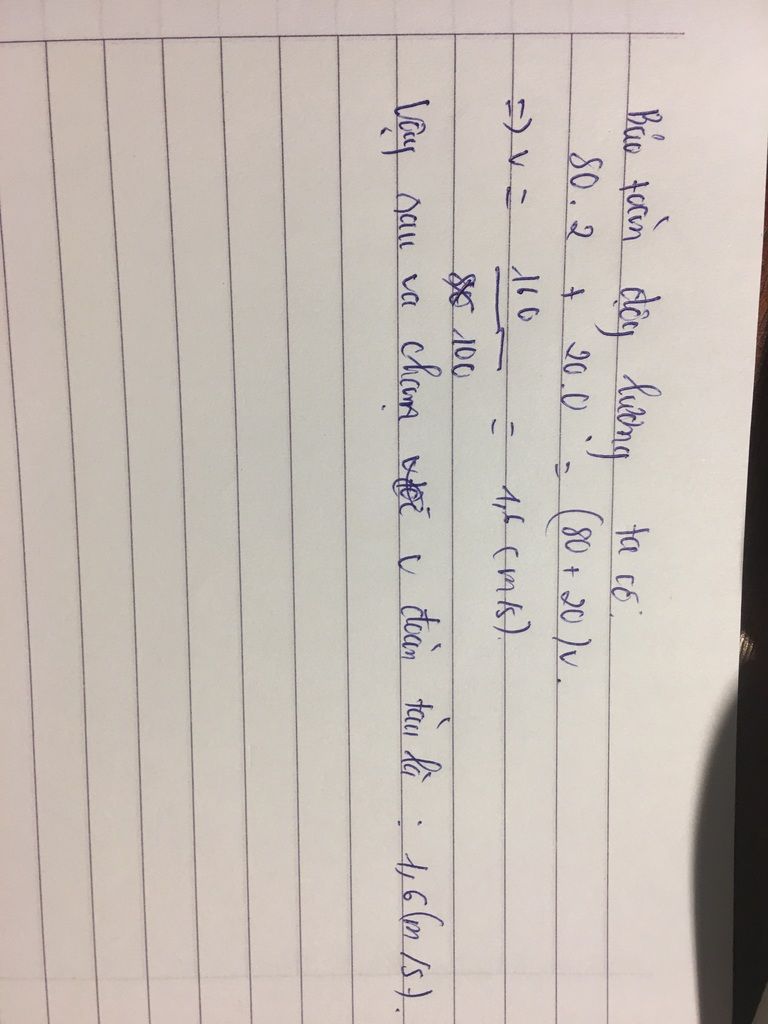 Bảo toàn động lượng ta có:
80.2 + 20.0 = (80+20)v.
=> v = 160 / 100 = 1,6 (m/s).
Vậy sau va chạm v đoàn tàu là : 1,6 (m/s).